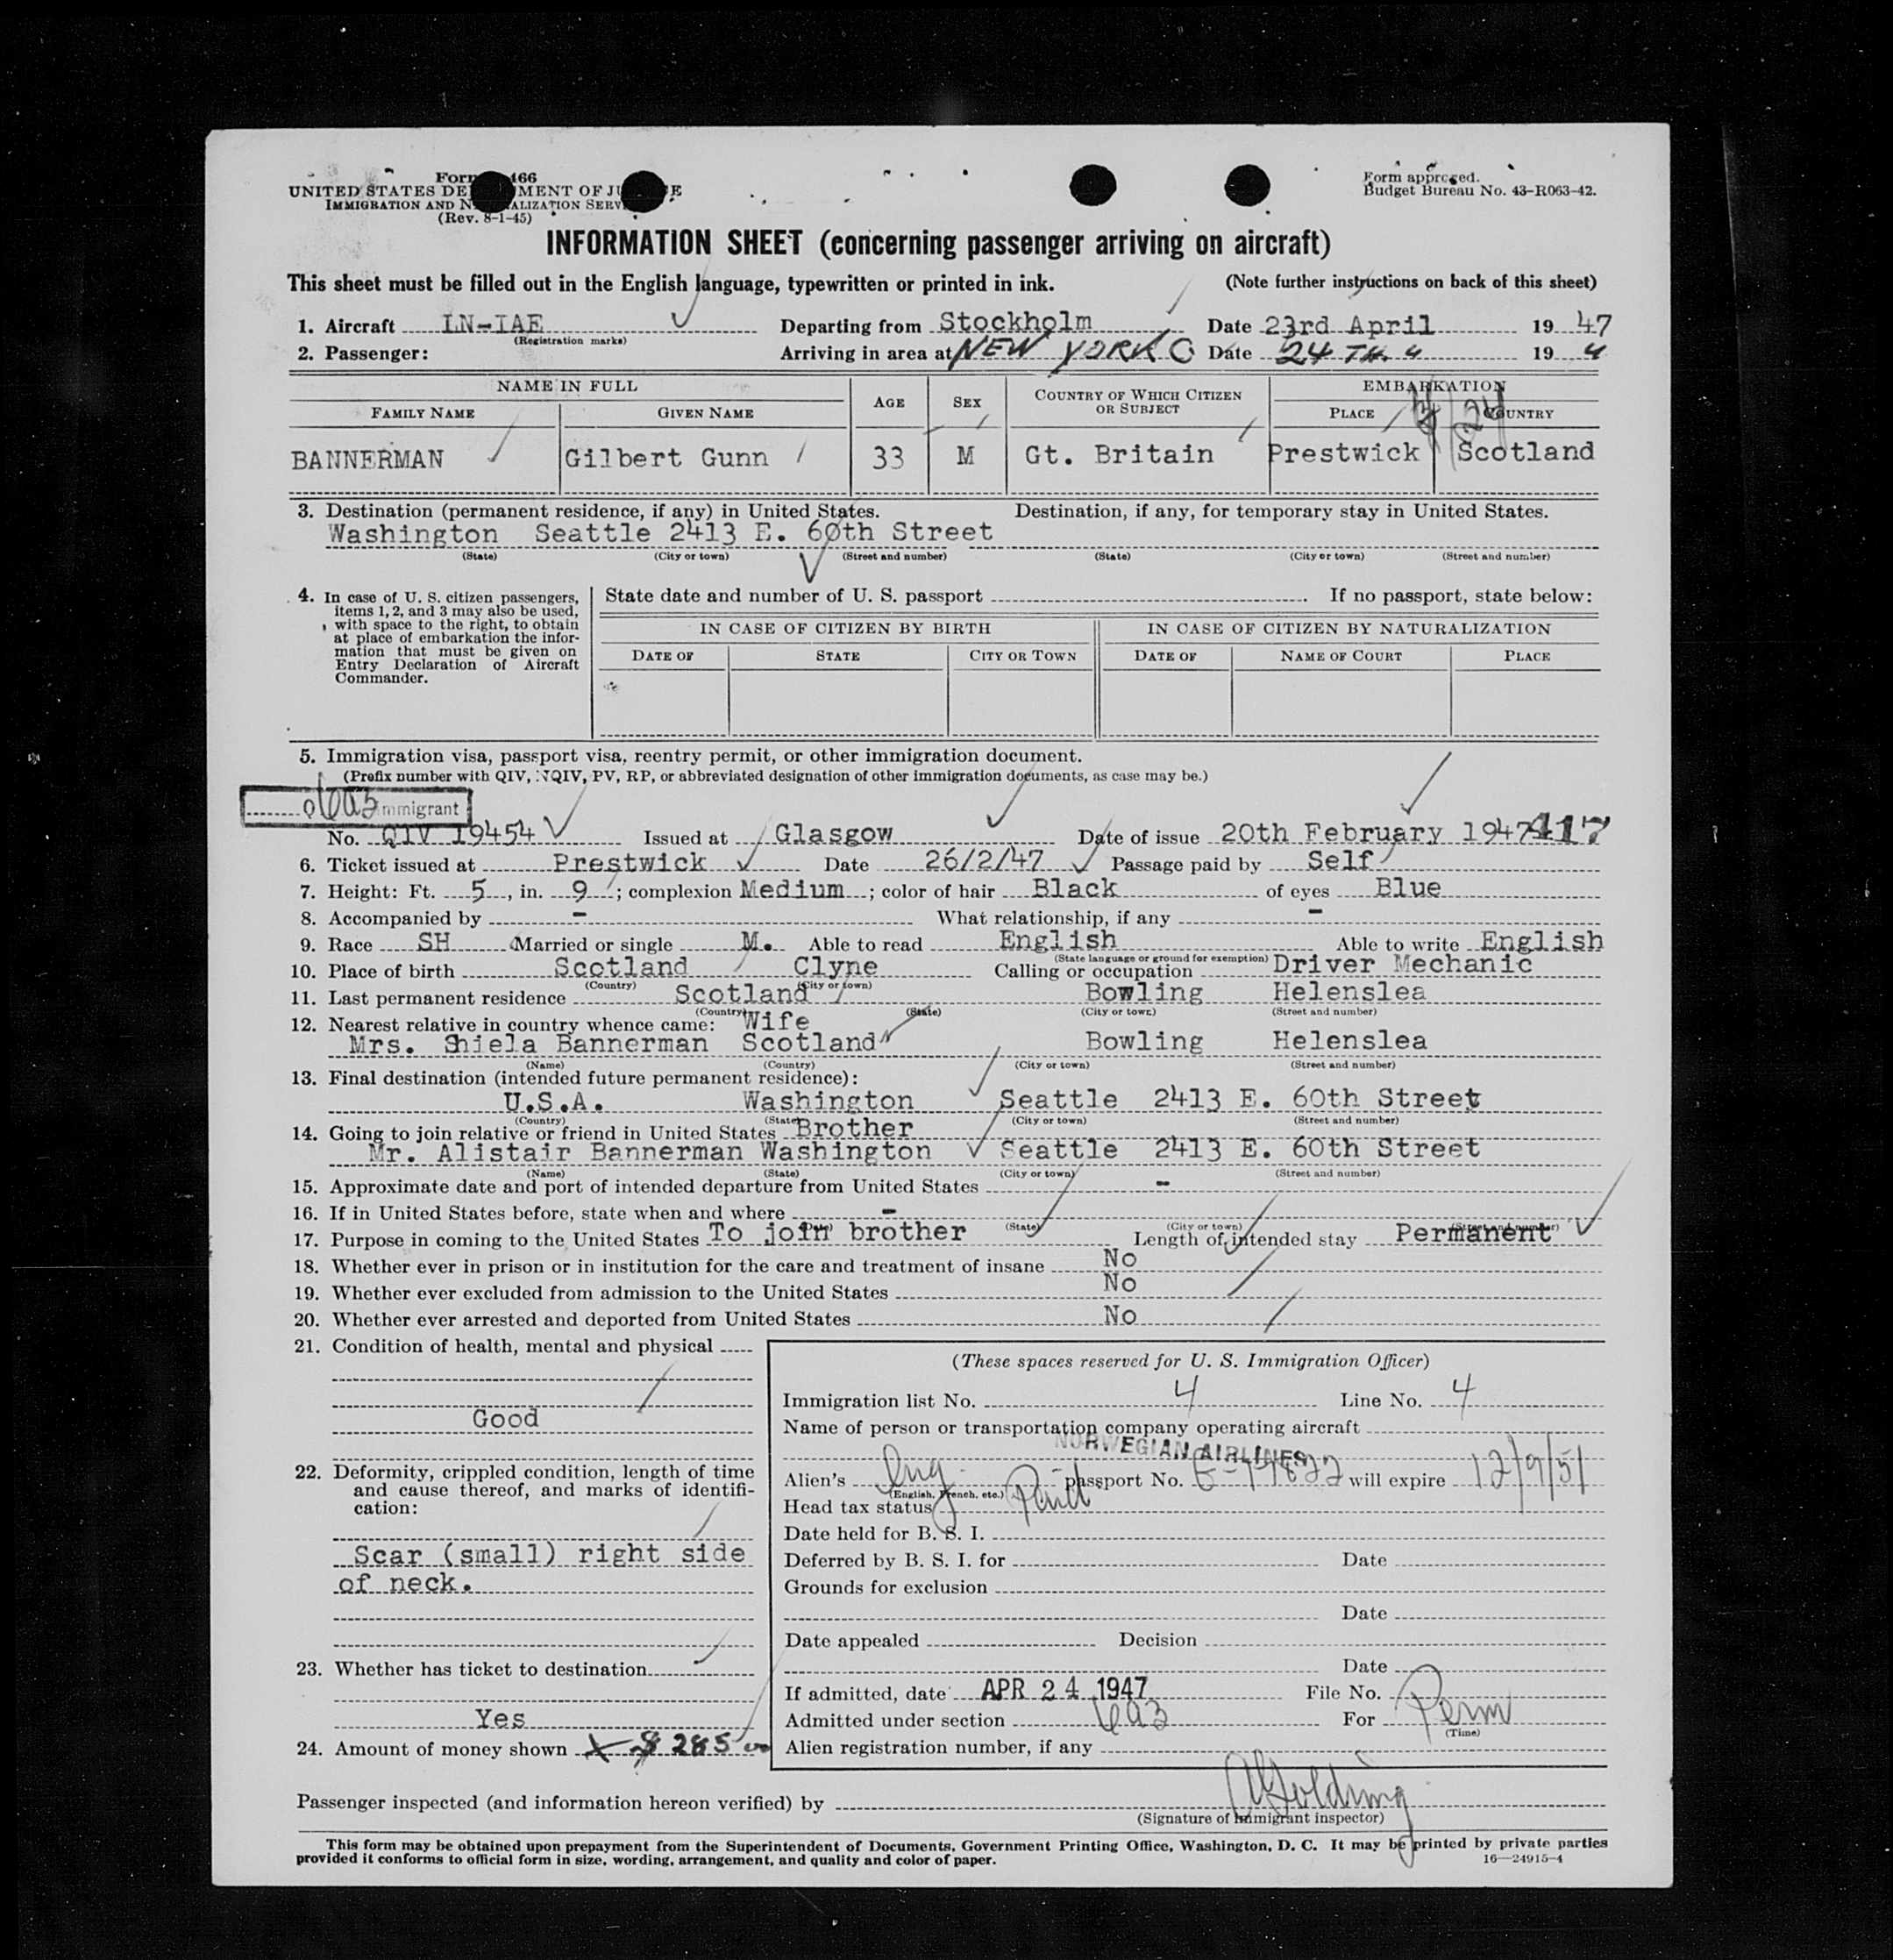 Form 466
UNITED STATES DEPARTMENT OF JUSTICE
IMMIGRATION AND NATURALIZATION SERVICE
(Rev. 8-1-45)
Form approved.
Budget Bureau No. 43-R063-42.
INFORMATION SHEET (concerning passenger arriving on aircraft)
This sheet must be filled out in the English language, typewritten or printed in ink. (Note further instructions on back of this sheet)
1. Aircraft LN-IAE Departing from Stockholm Date 23rd April 19 47
(Registration marks)
2. Passenger: Arriving in area at NEW YORK Date 24 TH. " 19 "
NAME IN FULL AGE SEX COUNTRY OF WHICH CITIZEN OR SUBJECT EMBARKATION
FAMILY NAME GIVEN NAME PLACE COUNTRY
BANNERMAN Gilbert Gunn 33 M Gt. Britain Prestwick Scotland
3. Destination (permanent residence, if any) in United States. Destination, if any, for temporary stay in United States.
Washington Seattle 2413 E. 60th Street
(State) (City or town) (Street and number) (State) (City or town) (Street and number)
4. In case of U. S. citizen passengers,
items 1, 2, and 3 may also be used,
with space to the right, to obtain
at place of embarkation the infor-
mation that must be given on
Entry Declaration of Aircraft
Commander.
State date and number of U. S. passport If no passport, state below:
IN CASE OF CITIZEN BY BIRTH IN CASE OF CITIZEN BY NATURALIZATION
DATE OF STATE CITY OR TOWN DATE OF NAME OF COURT PLACE
5. Immigration visa, passport visa, reentry permit, or other immigration document.
(Prefix number with QIV, NQIV, PV, RP, or abbreviated designation of other immigration documents, as case may be.)
immigrant
No. QIV 19454 Issued at Glasgow Date of issue 20th February 1947 417
6. Ticket issued at Prestwick Date 26/2/47 Passage paid by Self
7. Height: Ft. 5, in. 9; complexion Medium; color of hair Black of eyes Blue
8. Accompanied by - What relationship, if any -
9. Race SH Married or single M. Able to read English Able to write English
(State language or ground for exemption)
10. Place of birth Scotland Clyne Calling or occupation Driver Mechanic
(Country) (City or town)
11. Last permanent residence Scotland Bowling Helenslea
(Country) (State) (City or town) (Street and number)
12. Nearest relative in country whence came: Wife
Mrs. Shiela Bannerman Scotland Bowling Helenslea
(Name) (Country) (City or town) (Street and number)
13. Final destination (intended future permanent residence):
U.S.A. Washington Seattle 2413 E. 60th Street
(Country) (State) (City or town) (Street and number)
14. Going to join relative or friend in United States Brother
Mr. Alistair Bannerman Washington Seattle 2413 E. 60th Street
(Name) (State) (City or town) (Street and number)
15. Approximate date and port of intended departure from United States -
16. If in United States before, state when and where -
(State) (City or town) (Street and number)
17. Purpose in coming to the United States To join brother Length of intended stay Permanent
18. Whether ever in prison or in institution for the care and treatment of insane No
19. Whether ever excluded from admission to the United States No
20. Whether ever arrested and deported from United States No
21. Condition of health, mental and physical
Good
22. Deformity, crippled condition, length of time
and cause thereof, and marks of identifi-
cation:
Scar (small) right side
of neck.
23. Whether has ticket to destination
Yes
24. Amount of money shown $ 285
(These spaces reserved for U. S. Immigration Officer)
Immigration list No. 4 Line No. 4
Name of person or transportation company operating aircraft
NORWEGIAN AIRLINES
Alien's Eng. passport No. will expire 12/9/51
(English, French, etc.)
Head tax status Paid
Date held for B. S. I.
Deferred by B. S. I. for Date
Grounds for exclusion
Date
Date appealed Decision
Date
If admitted, date APR 24 1947 File No.
Admitted under section 6a3 For Perm
(Time)
Alien registration number, if any
Passenger inspected (and information hereon verified) by
(Signature of immigrant inspector)
This form may be obtained upon prepayment from the Superintendent of Documents, Government Printing Office, Washington, D. C. It may be printed by private parties
provided it conforms to official form in size, wording, arrangement, and quality and color of paper. 16—24915-4